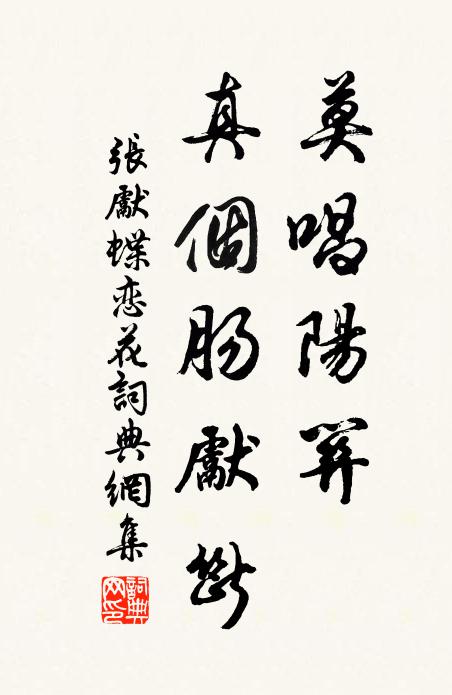 莫唱陽關
真個腸獻斷
張獻蝶恋花詞典網集
詞典網印